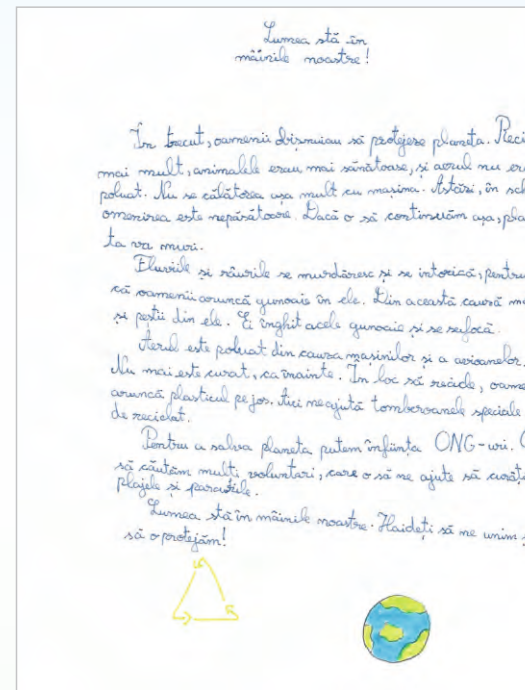 Lumea stă în
mâinile noastre!
În trecut, oamenii obișnuiau să protejeze planeta. Reci
mai mult, animalele erau mai sănătoase, și aerul nu er
poluat. Nu se călătorea așa mult cu mașina. Astăzi, în sch
omenirea este nepăsătoare. Dacă o să continuăm așa, pla
ta va muri.
Fluviile și râurile se murdăresc și se intoxică, pentru
că oamenii aruncă gunoaie în ele. Din această cauză m
și peștii din ele. Ei înghit acele gunoaie și se sufocă.
Aerul este poluat din cauza mașinilor și a avioanelor.
Nu mai este curat, ca înainte. În loc să recicle, oame
aruncă plasticul pe jos. Aici ne ajută tomberoanele speciale
de reciclat.
Pentru a salva planeta putem înființa ONG-uri.
să căutăm mulți voluntari, care o să ne ajute să curăț
plajele și
Lumea stă în mâinile noastre. Haideți să ne unim ș
să o protejăm!